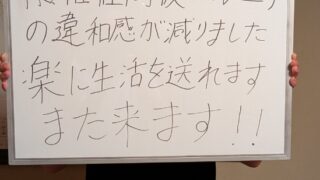 の違和感が減りました
楽に生活を送れます
また来ます!!